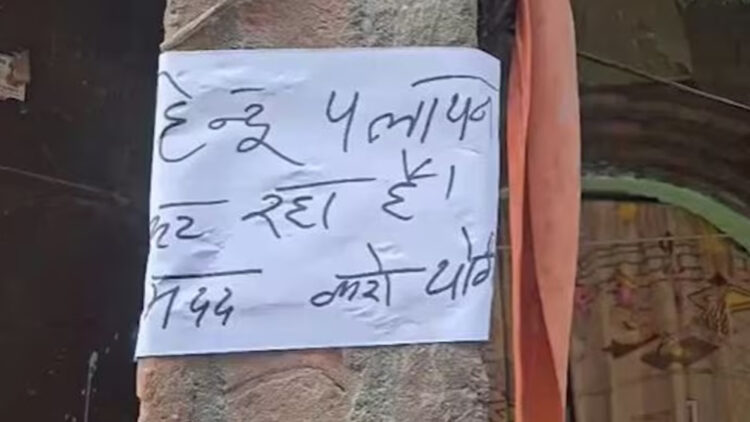 हिन्दू पलायन
कर रहा है।
मदद करो योगी